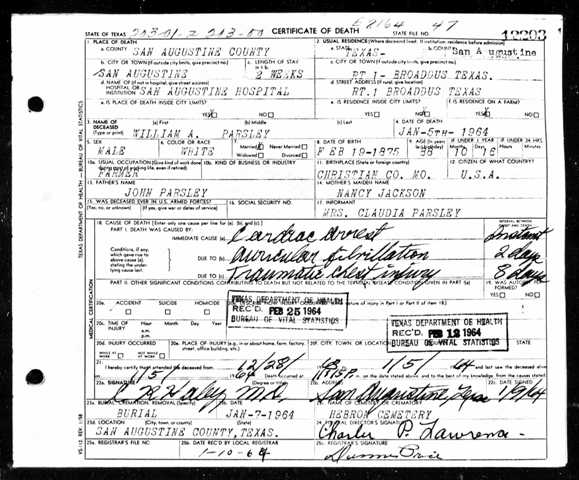 E 8164 47
STATE OF TEXAS
CERTIFICATE OF DEATH
STATE FILE NO.
1. PLACE OF DEATH
2. USUAL RESIDENCE (Where deceased lived. If institution residence before admission)
a. COUNTY SAN AUGUSTINE COUNTY
a. STATE TEXAS-
b. COUNTY San Augustine
b. CITY OR TOWN (If outside city limits, give precinct no.)
c. LENGTH OF STAY
c. CITY OR TOWN (If outside city limits, give precinct no.)
SAN AUGUSTINE
2 WEEKS
RT 1- BROADDUS TEXAS.
d. NAME OF (If not in hospital, give street address)
HOSPITAL OR INSTITUTION SAN AUGUSTINE HOSPITAL
d. STREET ADDRESS (If rural, give location)
RT.1 BROADDUS TEXAS
e. IS PLACE OF DEATH INSIDE CITY LIMITS?
e. IS RESIDENCE INSIDE CITY LIMITS?
f. IS RESIDENCE ON A FARM?
3. NAME OF DECEASED (Type or print)
(a) First
(b) Middle
(c) Last
4. DATE OF DEATH
WILLIAM A. PARSLEY
JAN-5TH-1964
5. SEX
6. COLOR OR RACE
7. Married
Never Married
Widowed
Divorced
8. DATE OF BIRTH
9. AGE
IF UNDER 1 YEAR
IF UNDER 24 HRS.
MALE
WHITE
FEB 19-1875
10
10a. USUAL OCCUPATION (Give kind of work done
10b. KIND OF BUSINESS OR INDUSTRY
11. BIRTHPLACE (State or foreign country)
12. CITIZEN OF WHAT COUNTRY?
FARMER
CHRISTIAN CO. MO.
U.S.A.
13. FATHER'S NAME
14. MOTHER'S MAIDEN NAME
JOHN PARSLEY
NANCY JACKSON
15. WAS DECEASED EVER IN U.S. ARMED FORCES?
(Yes, no, or unknown) (If yes, give war or dates of service)
16. SOCIAL SECURITY NO.
17. INFORMANT
MRS. CLAUDIA PARSLEY
18. CAUSE OF DEATH [Enter only one cause per line for (a), (b), and (c).]
PART I. DEATH WAS CAUSED BY:
IMMEDIATE CAUSE (a) Cardiac arrest
Instant
Conditions, if any, which gave rise to above cause (a), stating the underlying cause last.
DUE TO (b) auricular fibrillation
2 days
DUE TO (c) Traumatic chest injury
8 days
PART II. OTHER SIGNIFICANT CONDITIONS CONTRIBUTING TO DEATH BUT NOT RELATED TO THE TERMINAL DISEASE CONDITION GIVEN IN PART I(a)
19. WAS AUTOPSY
20a. ACCIDENT SUICIDE HOMICIDE
TEXAS DEPARTMENT OF HEALTH
REC'D FEB 25 1964
BUREAU OF VITAL STATISTICS
TEXAS DEPARTMENT OF HEALTH
REC'D. FEB 12 1964
BUREAU OF VITAL STATISTICS
20c. TIME OF INJURY
20d. INJURY OCCURRED
20e. PLACE OF INJURY (e.g., in or about home, farm, factory, street, office building, etc.)
20f. CITY, TOWN, OR LOCATION
COUNTY
STATE
21. I hereby certify that I attended the deceased from 12/28/ 1/5/ 64
22a. SIGNATURE
(Degree or title)
22b. ADDRESS
22c. DATE SIGNED
Haley, M.D.
San Augustine
23a. BURIAL, CREMATION, REMOVAL (Specify)
23b. DATE
23c. NAME OF CEMETERY OR CREMATORY
BURIAL
JAN-7-1964
HEBRON CEMETERY
23d. LOCATION (City, town, or county) (State)
24. FUNERAL DIRECTOR'S SIGNATURE
SAN AUGUSTINE COUNTY, TEXAS.
Charles P. Lawrence
25a. REGISTRAR'S FILE NO.
25b. DATE REC'D BY LOCAL REGISTRAR
25c. REGISTRAR'S SIGNATURE
1-10-64
TEXAS DEPARTMENT OF HEALTH - BUREAU OF VITAL STATISTICS
MEDICAL CERTIFICATION